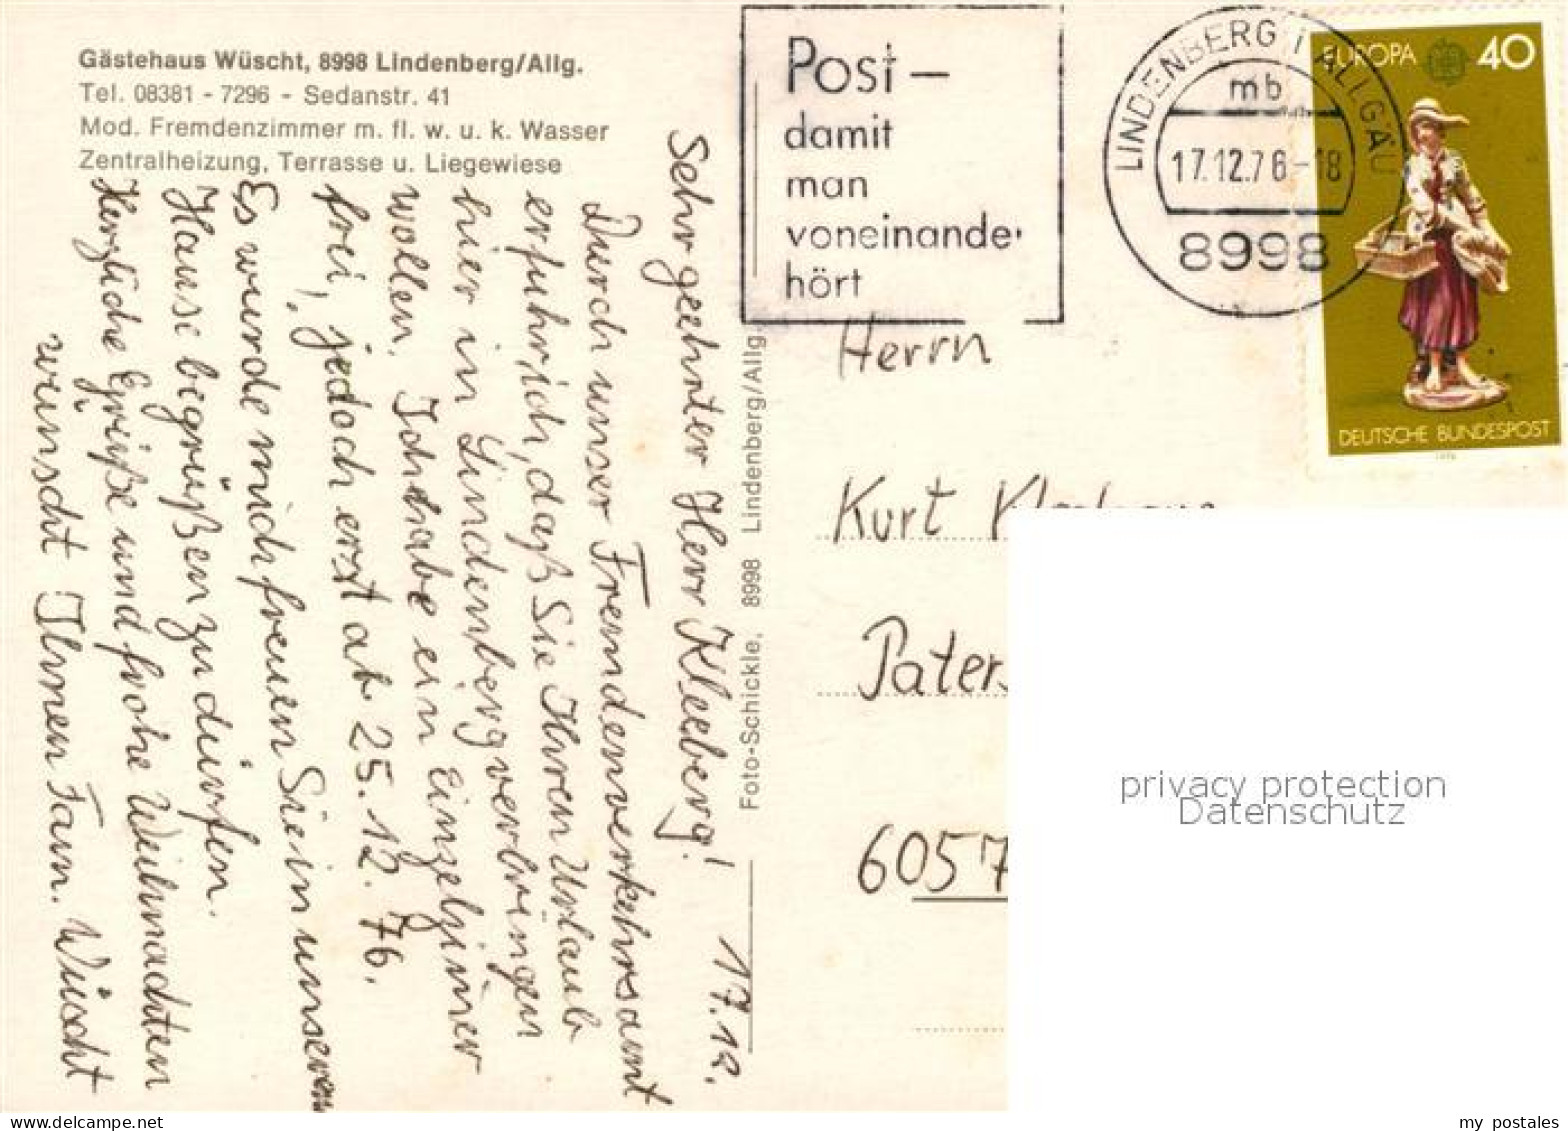 Gästehaus Wüscht, 8998 Lindenberg/Allg.
Tel. 08381 - 7296 - Sedanstr. 41
Mod. Fremdenzimmer m. fl. w. u. k. Wasser
Zentralheizung, Terrasse u. Liegewiese
17.12.
Sehr geehrter Herr Kleeberg!
Durch unser Fremdenverkehrsamt
erfuhr ich, daß Sie Ihren Urlaub
hier in Lindenberg verbringen
wollen. Ich habe ein Einzelzimmer
frei, jedoch erst ab 25.12.76.
Es würde mich freuen Sie in unserem
Hause begrüßen zu dürfen.
Herzliche Grüße und frohe Weihnachten
wünscht Ihnen Fam. Wüscht
Foto-Schickle, 8998 Lindenberg/Allg
Post –
damit
man
voneinander
hört
LINDENBERG i ALLGÄU
mb
17.12.76-18
8998
EUROPA 40
DEUTSCHE BUNDESPOST
1976
Herrn
Kurt
Paters
6057
privacy protection
Datenschutz
my postales